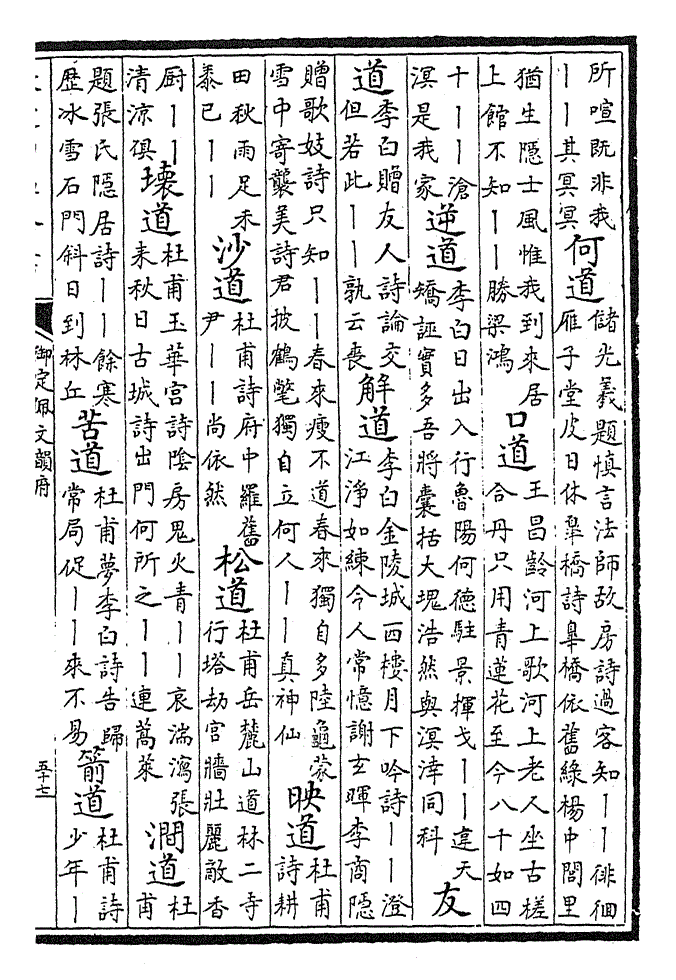 所喧既非我丨丨其冥冥何道儲光羲題慎言法師故房詩過客知丨丨徘徊雁子堂皮日休臯橋詩臯橋依舊綠楊中閭里
猶生隱士風惟我到來居上館不知丨丨勝梁鴻口道王昌齡河上歌河上老人坐古槎合丹只用青蓮花至今八千如四
十丨丨滄溟是我家逆道李白日出入行魯陽何德駐景揮戈丨丨違天矯誣實多吾將囊括大塊浩然與溟涬同科友
道李白贈友人詩論交但若此丨丨孰云喪解道李白金陵城西樓月下吟詩丨丨澄江淨如練今人常憶謝玄暉李商隱
贈歌妓詩只知丨丨春來瘦不道春來獨自多陸龜蒙雪中寄襲美詩君披鶴氅獨自立何人丨丨真神仙映道杜甫詩耕
田秋雨足禾黍已丨丨沙道杜甫詩府中羅舊尹丨丨尚依然松道杜甫岳麓山道林二寺行塔劫宮牆壯麗敵香
厨丨丨清涼俱壞道杜甫玉華宮詩陰房鬼火青丨丨哀湍瀉張耒秋日古城詩出門何所之丨丨連蒿萊澗道杜甫
題張氏隱居詩丨丨餘寒歷冰雪石門斜日到林丘苦道杜甫夢李白詩告歸常局促丨丨來不易箭道杜甫詩少年丨
御定佩文韻府
五十七